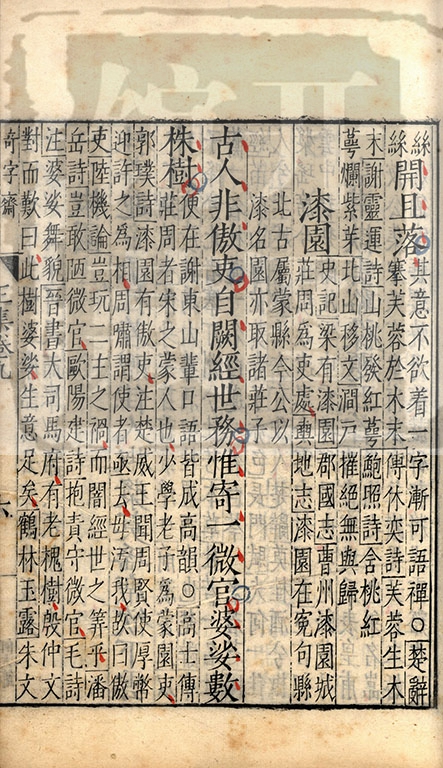 開且落
其意不欲着一字漸可語禪○楚辭
搴芙蓉於木末傅休奕詩芙蓉生木
末謝靈運詩山桃發紅萼鮑照詩合桃紅
萼爛紫茅北山移文澗戶摧絕無與歸
漆園
史記梁有漆園郡國志曹州漆園城
莊周爲吏處輿地志漆園在寃句縣
北古屬蒙縣今公以
漆名園亦取諸莊子
古人非傲吏自闕經世務惟寄一微官婆娑數
株樹
便在謝東山輩口語皆成高韻○高士傳
莊周者宋之蒙人也少學老子爲蒙園吏
郭璞詩漆園有傲吏注楚威王聞周賢使厚幣
迎許之爲相周嘯謂使者亟去毋汚我故曰傲
吏陸機論豈玩二主之禍而闇經世之筭乎潘
岳詩豈敢陋微官歐陽建詩抱責守微官毛詩
注婆娑舞貌晉書大司馬府有老槐樹殷仲文
對而歎曰此樹婆娑生意足矣鶴林玉露朱文
奇字齋